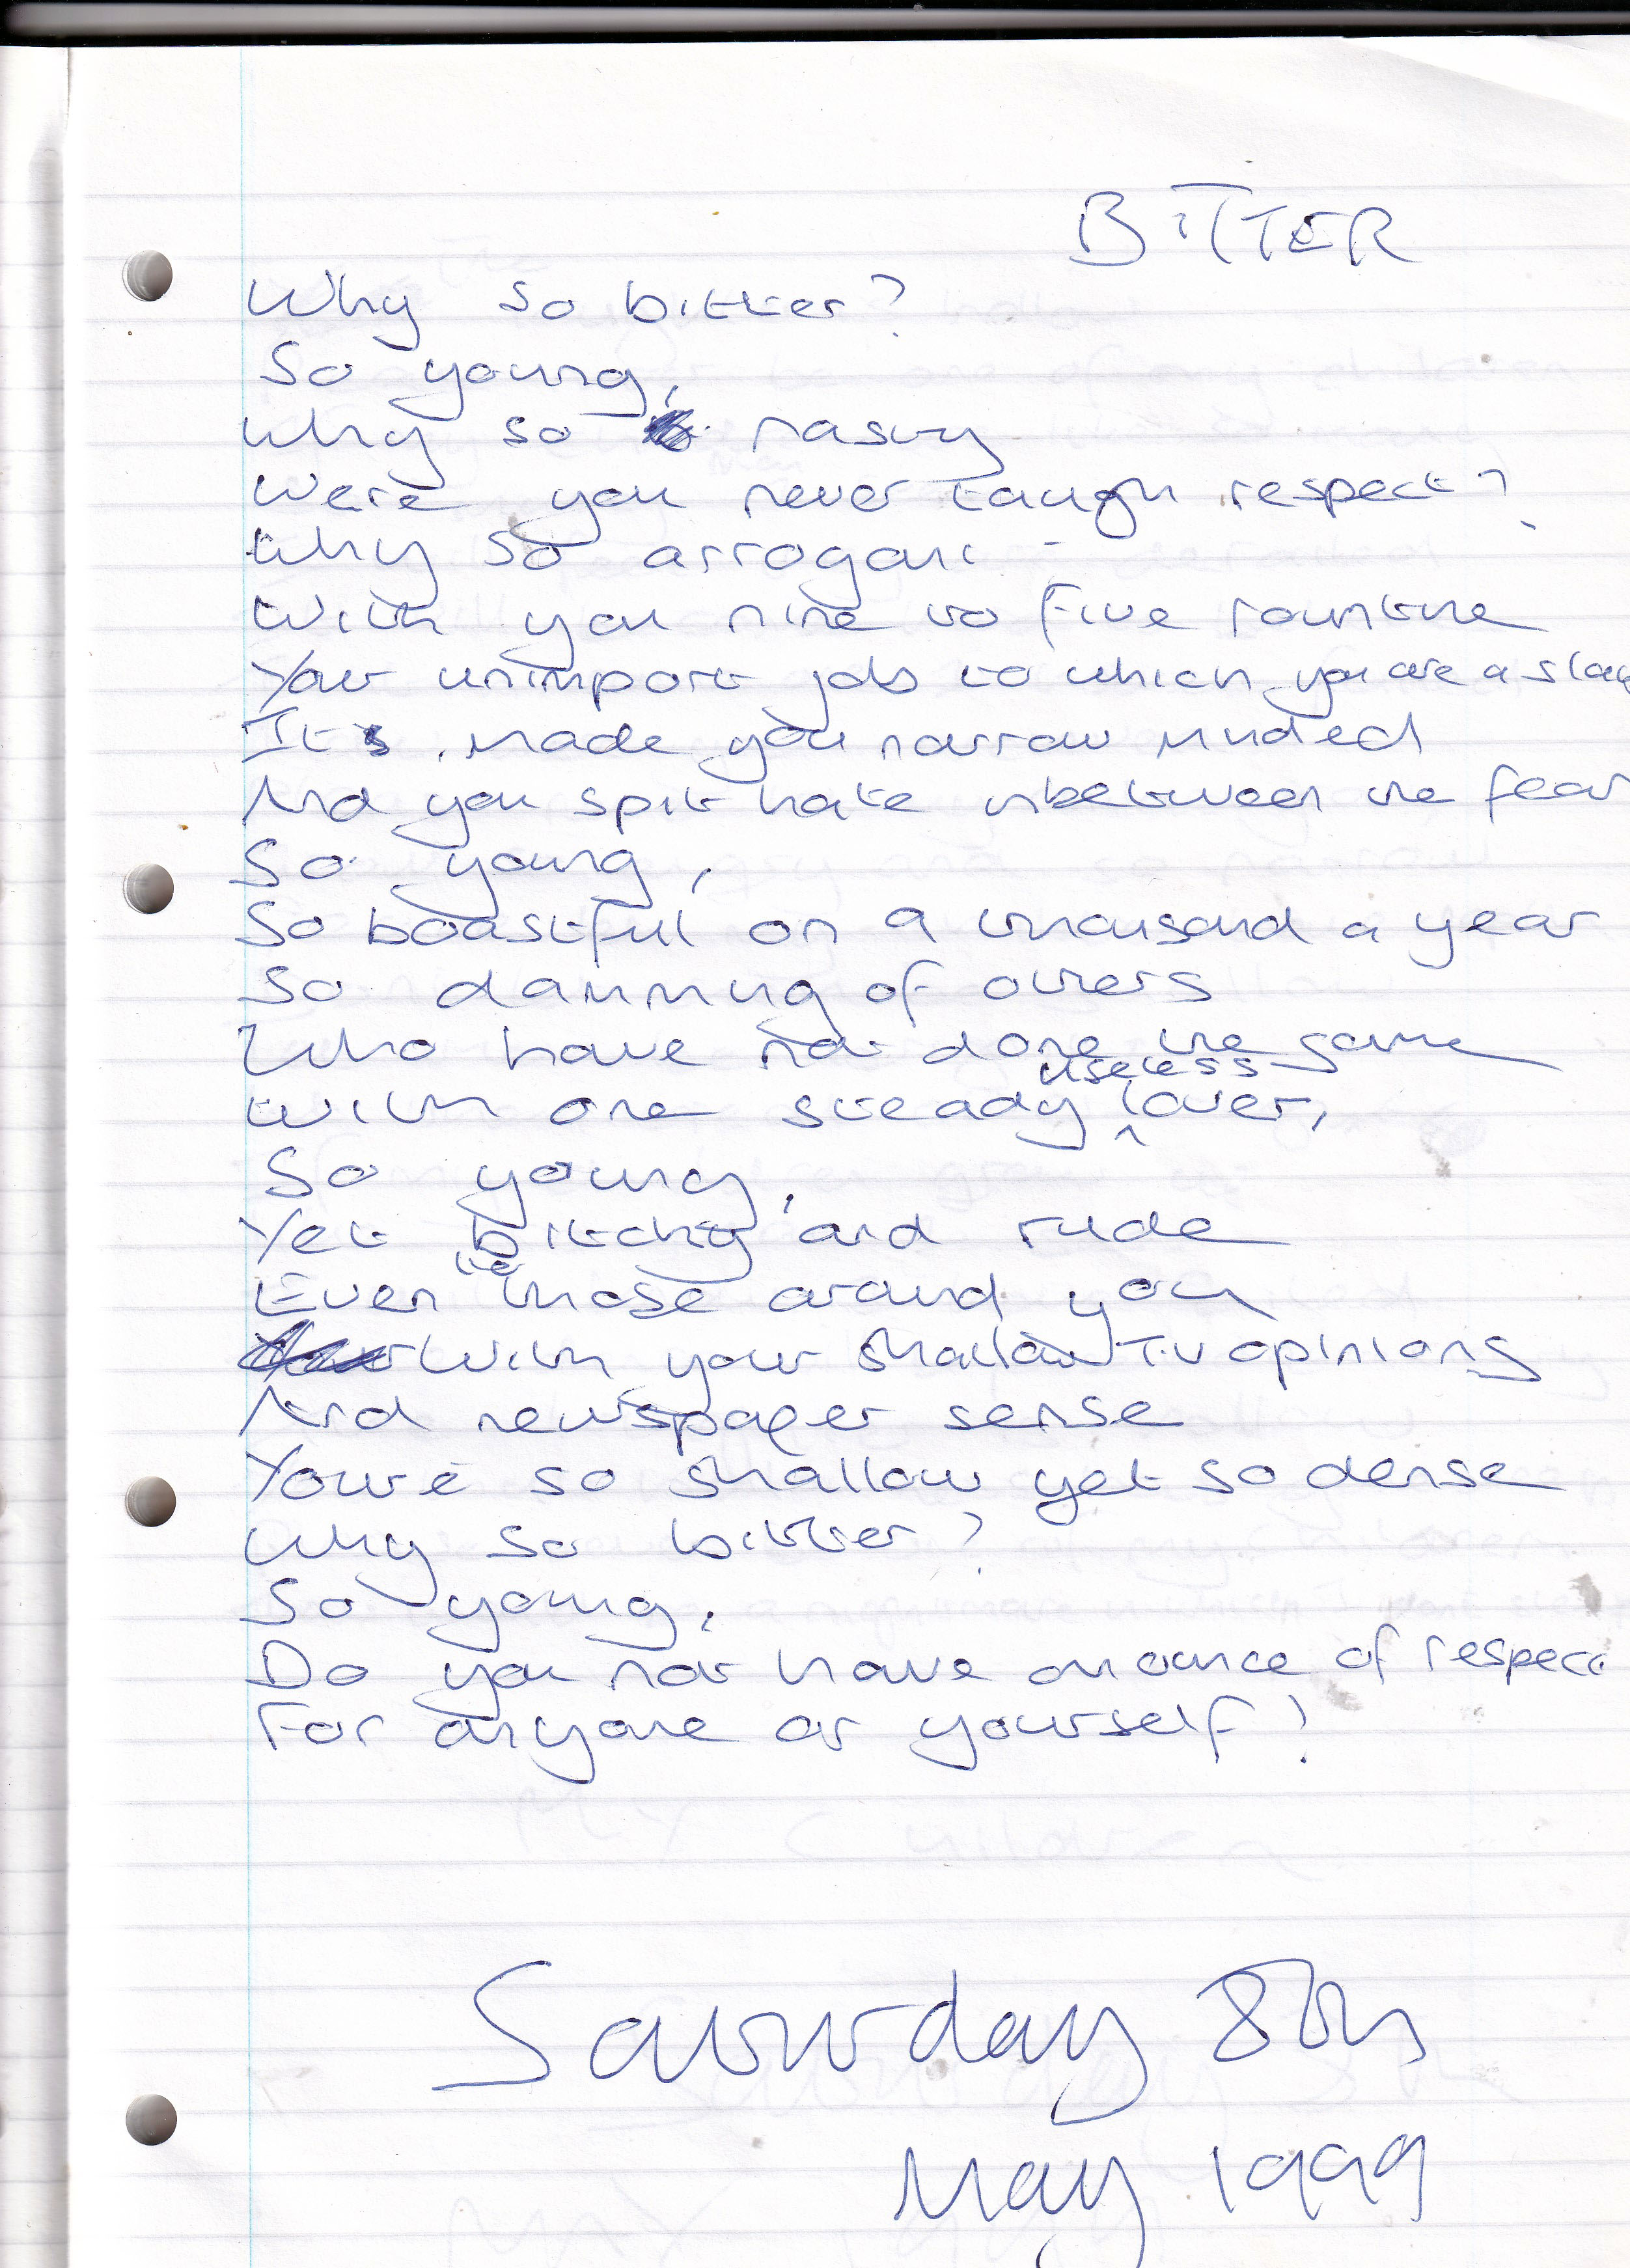 BITTER
Why so bitter?
So young,
Why so nasty
Were you never taugh respect?
Why so arrogant
With you nine to five rountine
Your unimport job to which you are a slave
It's made you narrow minded
And you spit hate inbetween the fear
So young,
So boastful on a thousand a year
So damning of others
Who have not done the same
With one steady useless lover,
So young,
Yet bitchy and rude
Even to those around you
With your shallow T.V opinions
And newspaper sense
Your'e so shallow yet so dense
Why so bitter?
So young,
Do you not have an ounce of respect
For anyone or yourself?
Saturday 8th
May 1999